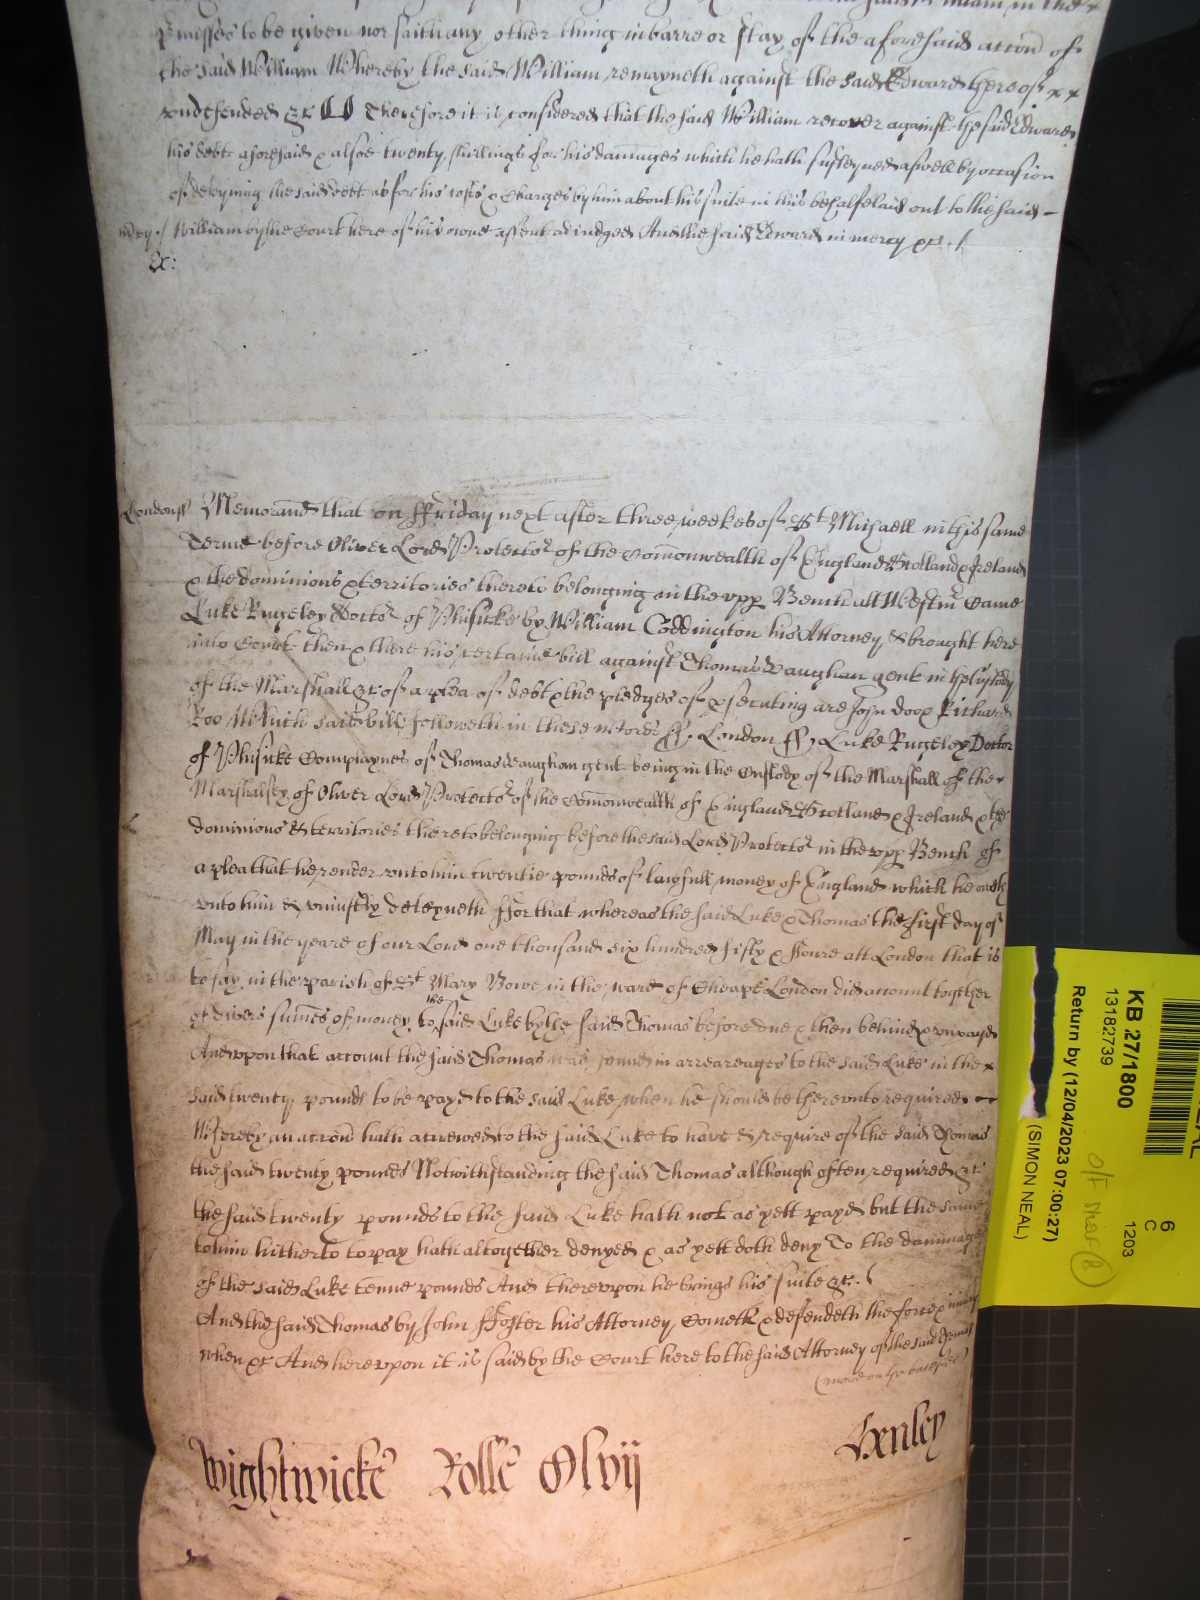 p'misses to be given nor saith any other thing in barre or stay of the aforesaid accon of
the said William Whereby the said William remayneth against the said Edward hereof x x
vndefended &c Therefore it is considered that the said William recover against the said Edward
his debt aforesaid & alsoe twenty shillings for his damages which he hath susteyned aswell by occasion
of deteyning the said debt as for his costs & Charges by him about his suite in this behalfe laid out to the said –
mercy / William by the Court here of his owne assent adiudged And the said Edward in mercy &c
Ex:
London ss Memorand that on ffriday next after three weekes of St Michaell in this same
Terme before Oliver Lord Protector of the Comonwealth of England Scotland & Ireland
& the dominions & territories thereto belonging in the vpp Bench att Westmr Came
Luke Rugeley Doctor of Phisicke by William Coddington his Attorney & brought here
into Court then & there his certaine bill against Thomas Vaughan gent in the custody
of the Marshall &c of a plea of debt & the pledges of p'secuting are John Doo & Richard
Roo Which said bill followeth in these words ss. London ss, Luke Rugeley Doctor
of Phisicke Complaynes of Thomas Vaughan gent being in the Custody of the Marshall of the
Marshalsey of Oliver Lord Protector of the Comonwealth of England Scotland & Ireland & the
dominions & territories thereto belonging before the said Lord Protector in the vpp Bench of
a plea that he render vnto him twentie pounds of lawfull money of England which he oweth
vnto him & vniustly deteyneth ffor that whereas the said Luke & Thomas the first day of
May in the yeare of our Lord one thousand six hundred fifty & ffoure att London that is
to say in the parish of St Mary Bowe in the ward of Cheape London did account together
of divers sumes of money to the said Luke by the said Thomas before due & then behind & vnpayd
And vpon that account the said Thomas was found in arrearages to the said Luke in the x
said twenty pounds to be payd to the said Luke when he should be therevnto required
Whereby an accon hath accrewed to the said Luke to have & require of the said Thomas
the said twenty pounds Notwithstanding the said Thomas although often required &c
the said twenty pounds to the said Luke hath not as yett payd but the same
to him hitherto to pay hath altogether denyed & as yett doth deny To the dammage
of the said Luke tenne pounds And therevpon he brings his suite &c.
And the said Thomas by John ffoster his Attorney Cometh & defendeth the force & iniury
when &c And herevpon it is said by the Court here to the said Attorney of the said Thomas
(more on the backside)
Wightwicke Rolle Olvij Henley
KB 27/1800
13182739
Return by (12/04/2023 07:00:27)
(SIMON NEAL)
6
C
1203